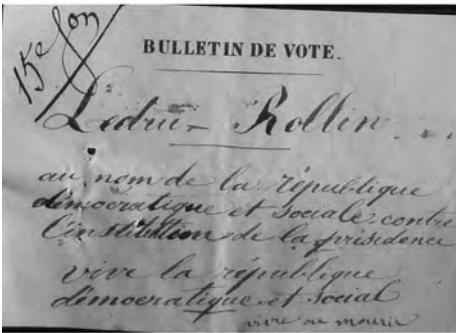 15e son
BULLETIN DE VOTE.
Ledru-Rollin
au nom de la république
démocratique et sociale contre
l'institution de la présidence
vive la république
démocratique et social
vivre ou mourir